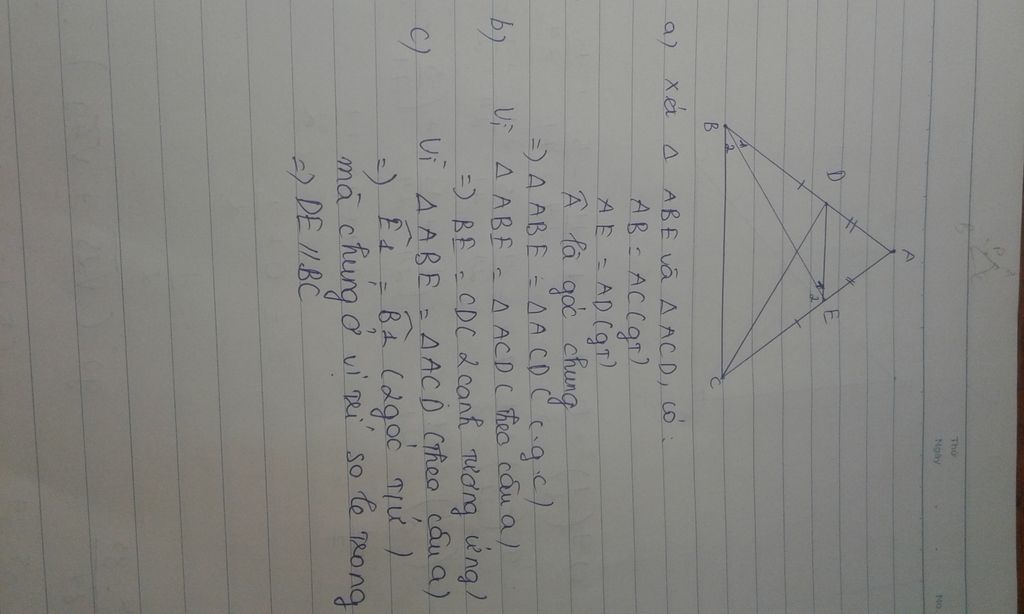 Thứ
Ngày
No
A
D
E
B
C
1
2
1
2
a) xét Δ ABE và Δ ACD, có:
AB = AC (gt)
AE = AD (gt)
Â là góc chung
=) Δ ABE = Δ ACD ( c.g.c)
b) Vì Δ ABE = Δ ACD ( theo câu a)
=) BE = CD ( 2 cạnh tương ứng)
c) Vì Δ ABE = Δ ACD (theo câu a)
=) Ê1 = B̂1 (2 góc T/Ư)
mà chúng ở vị trí so le trong
=) DE // BC